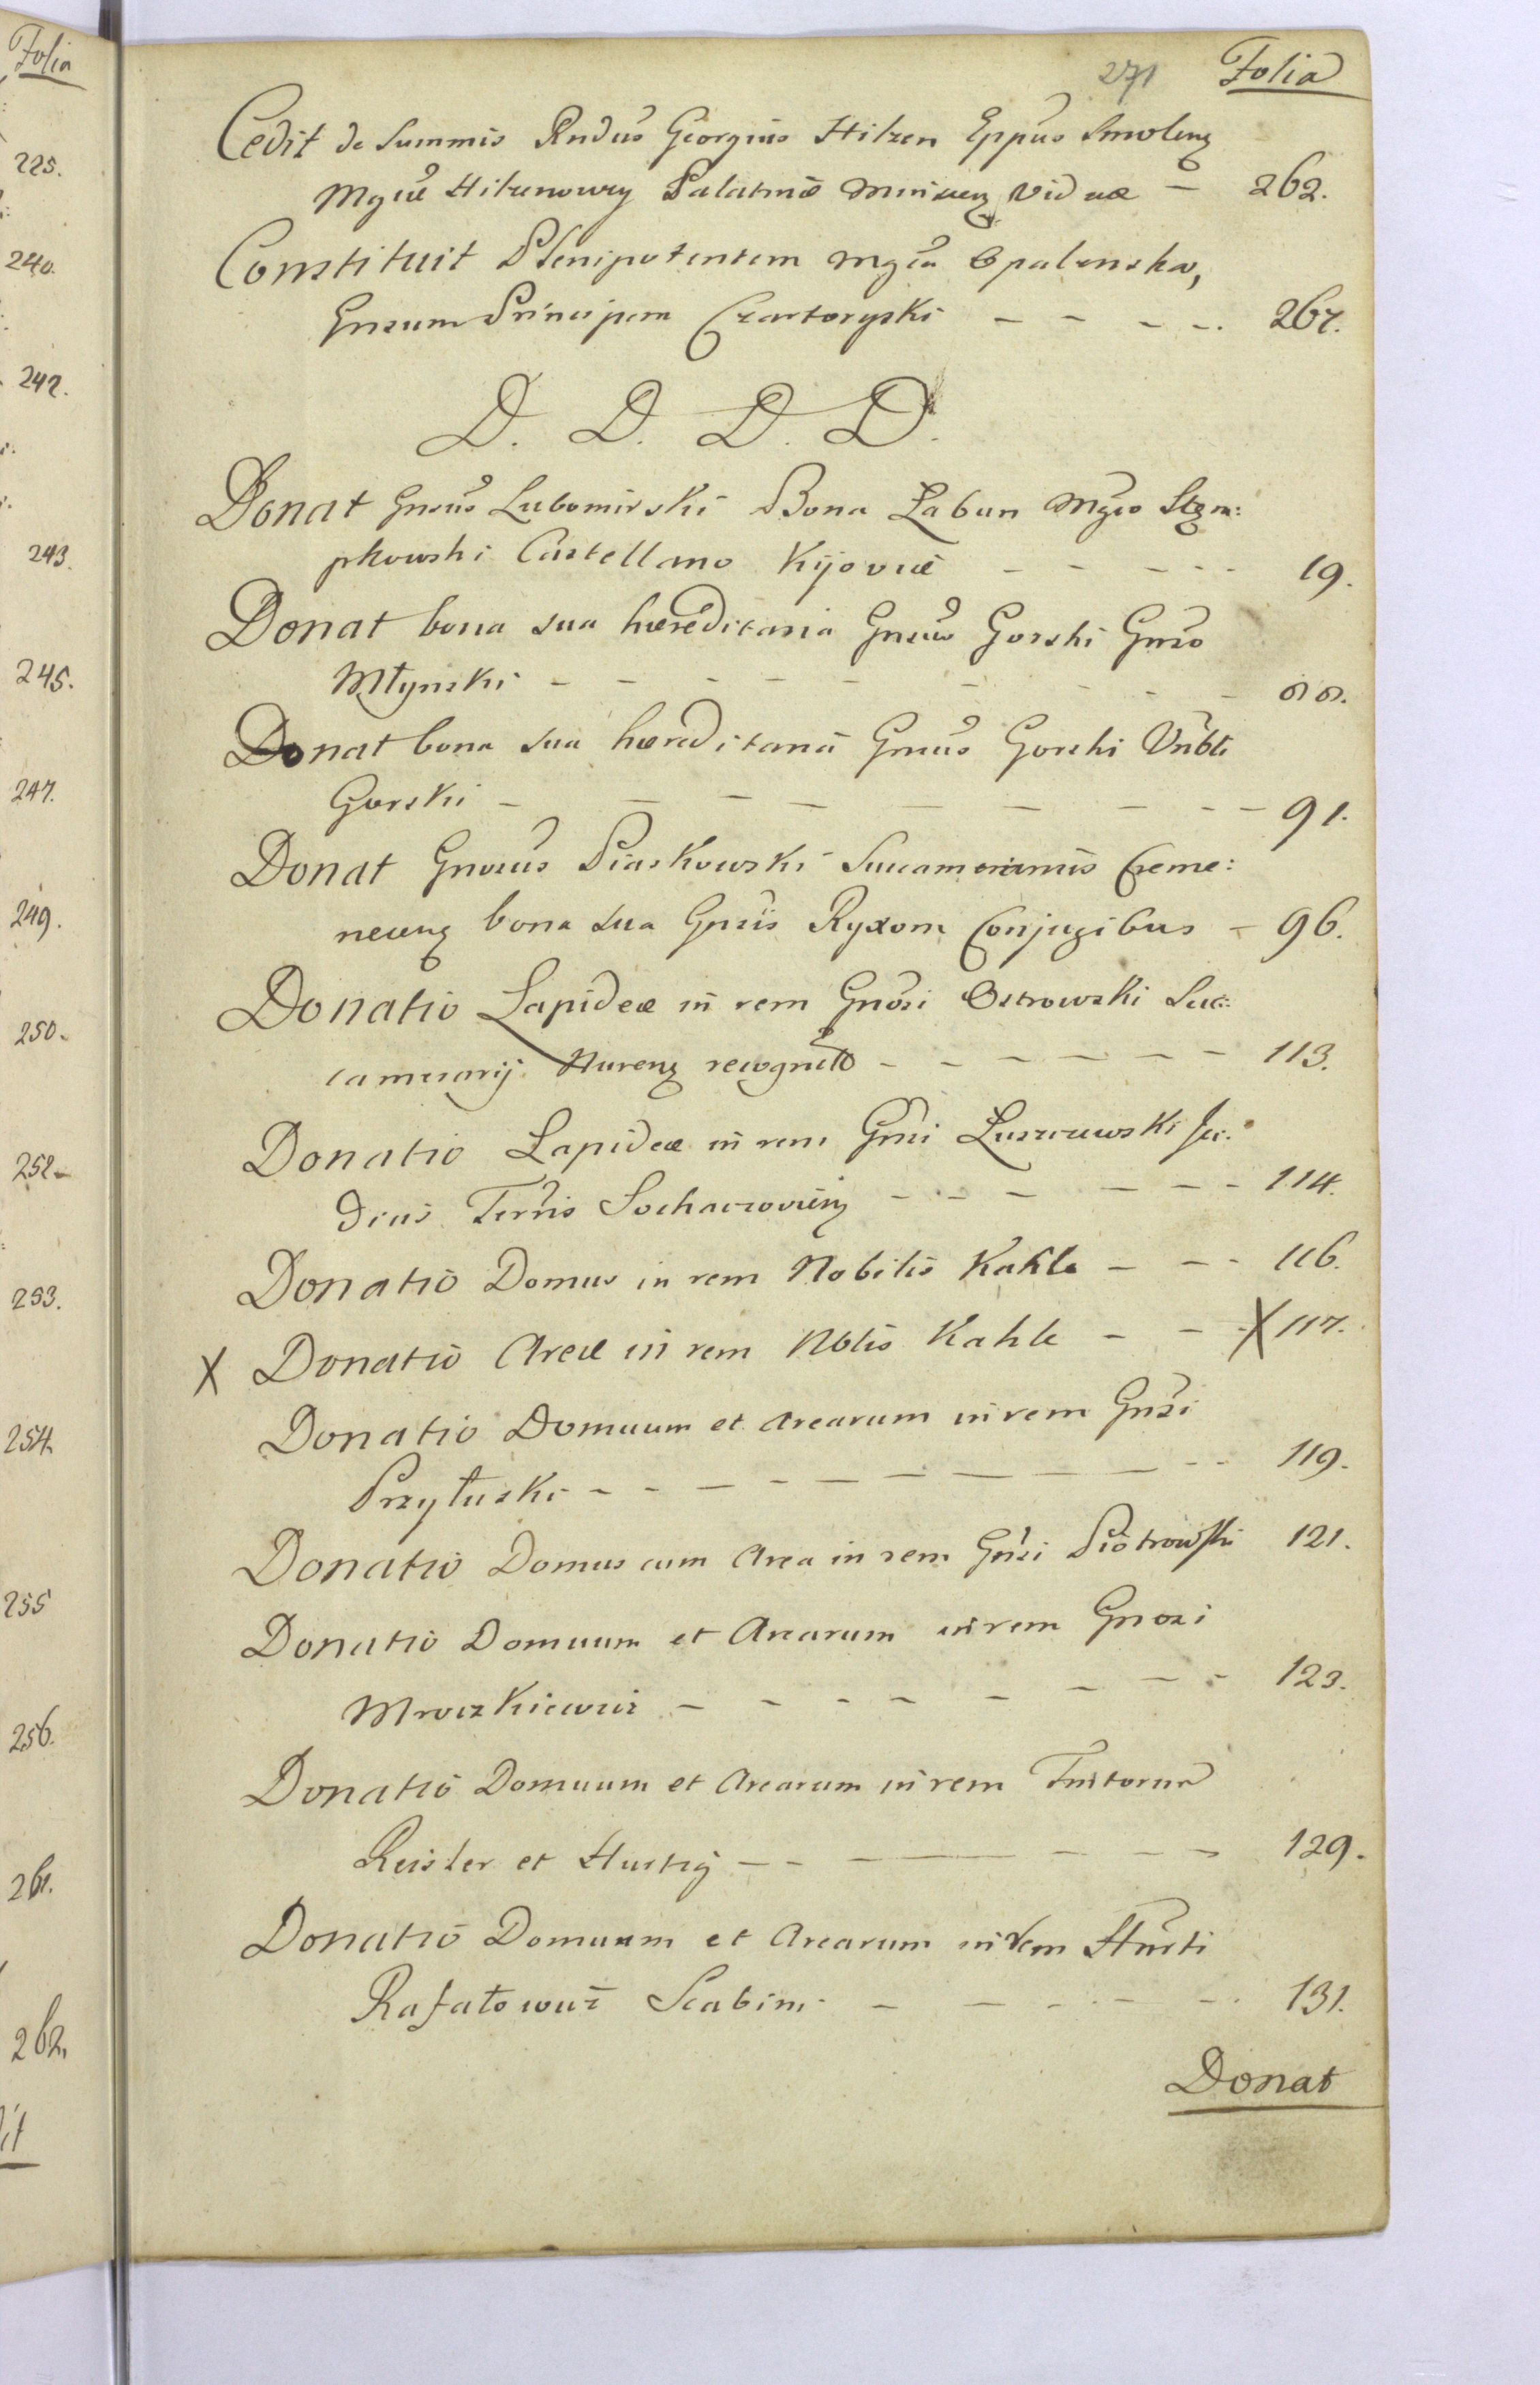 Folia
225.
240.
242.
243.
245.
247.
249.
250.
252
253.
254.
255
256.
261.
262.
271 Folia
Cedit de Summis Rndus Georgius Hilzen Eppus Smolenz
Mgcæ Hilzenowey Palatinæ Minscenz Viduæ - 262.
Constituit Plenipotentem Mgca Opalenska,
Gnsum Principem Czartoryski - - - - 267.
D. D. D. D.
Donat Gnsus Lubomirski Bona Łabun Mgco Stęm:
pkowski Castellano Kijoviæ - - - - - 19.
Donat bona sua hæreditaria Gnsus Gorski Gnso
Młynski - - - - - - - - - 88.
Donat bona sua hæreditaria Gnsus Gorski Vribli
Gorski - - - - - - - - - 91.
Donat Gnosus Piaskowski Succamerarius Creme:
necenz bona sua Gnsis Ryxom Conjugibus - 96.
Donatio Lapideæ in rem Gnosi Ostrowski Suc:
camerarij Nurenz - - - - - - 113.
Donatio Lapideæ in rem Gnsi Luszczewski Ju:
dicis Terris Sochaczoviens - - - - - - 114.
Donatio Domus in rem Nobilis Kahle - - - 116.
X Donatio Areæ in rem Nblis Kahle - - - X 117.
Donatio Domuum et Arearum in rem Gnsi
Przyłuski - - - - - - - - - - 119.
Donatio Domus cum Area in rem Gnsi Piotrowski 121.
Donatio Domuum et Arearum in rem Gnosi
Mroczkiewicz - - - - - - - - 123.
Donatio Domuum et Arearum in rem
Reisler et - - - - - - - 129.
Donatio Domuum et Arearum in rem
Rafałowicz Scabini - - - - - - 131.
Donat